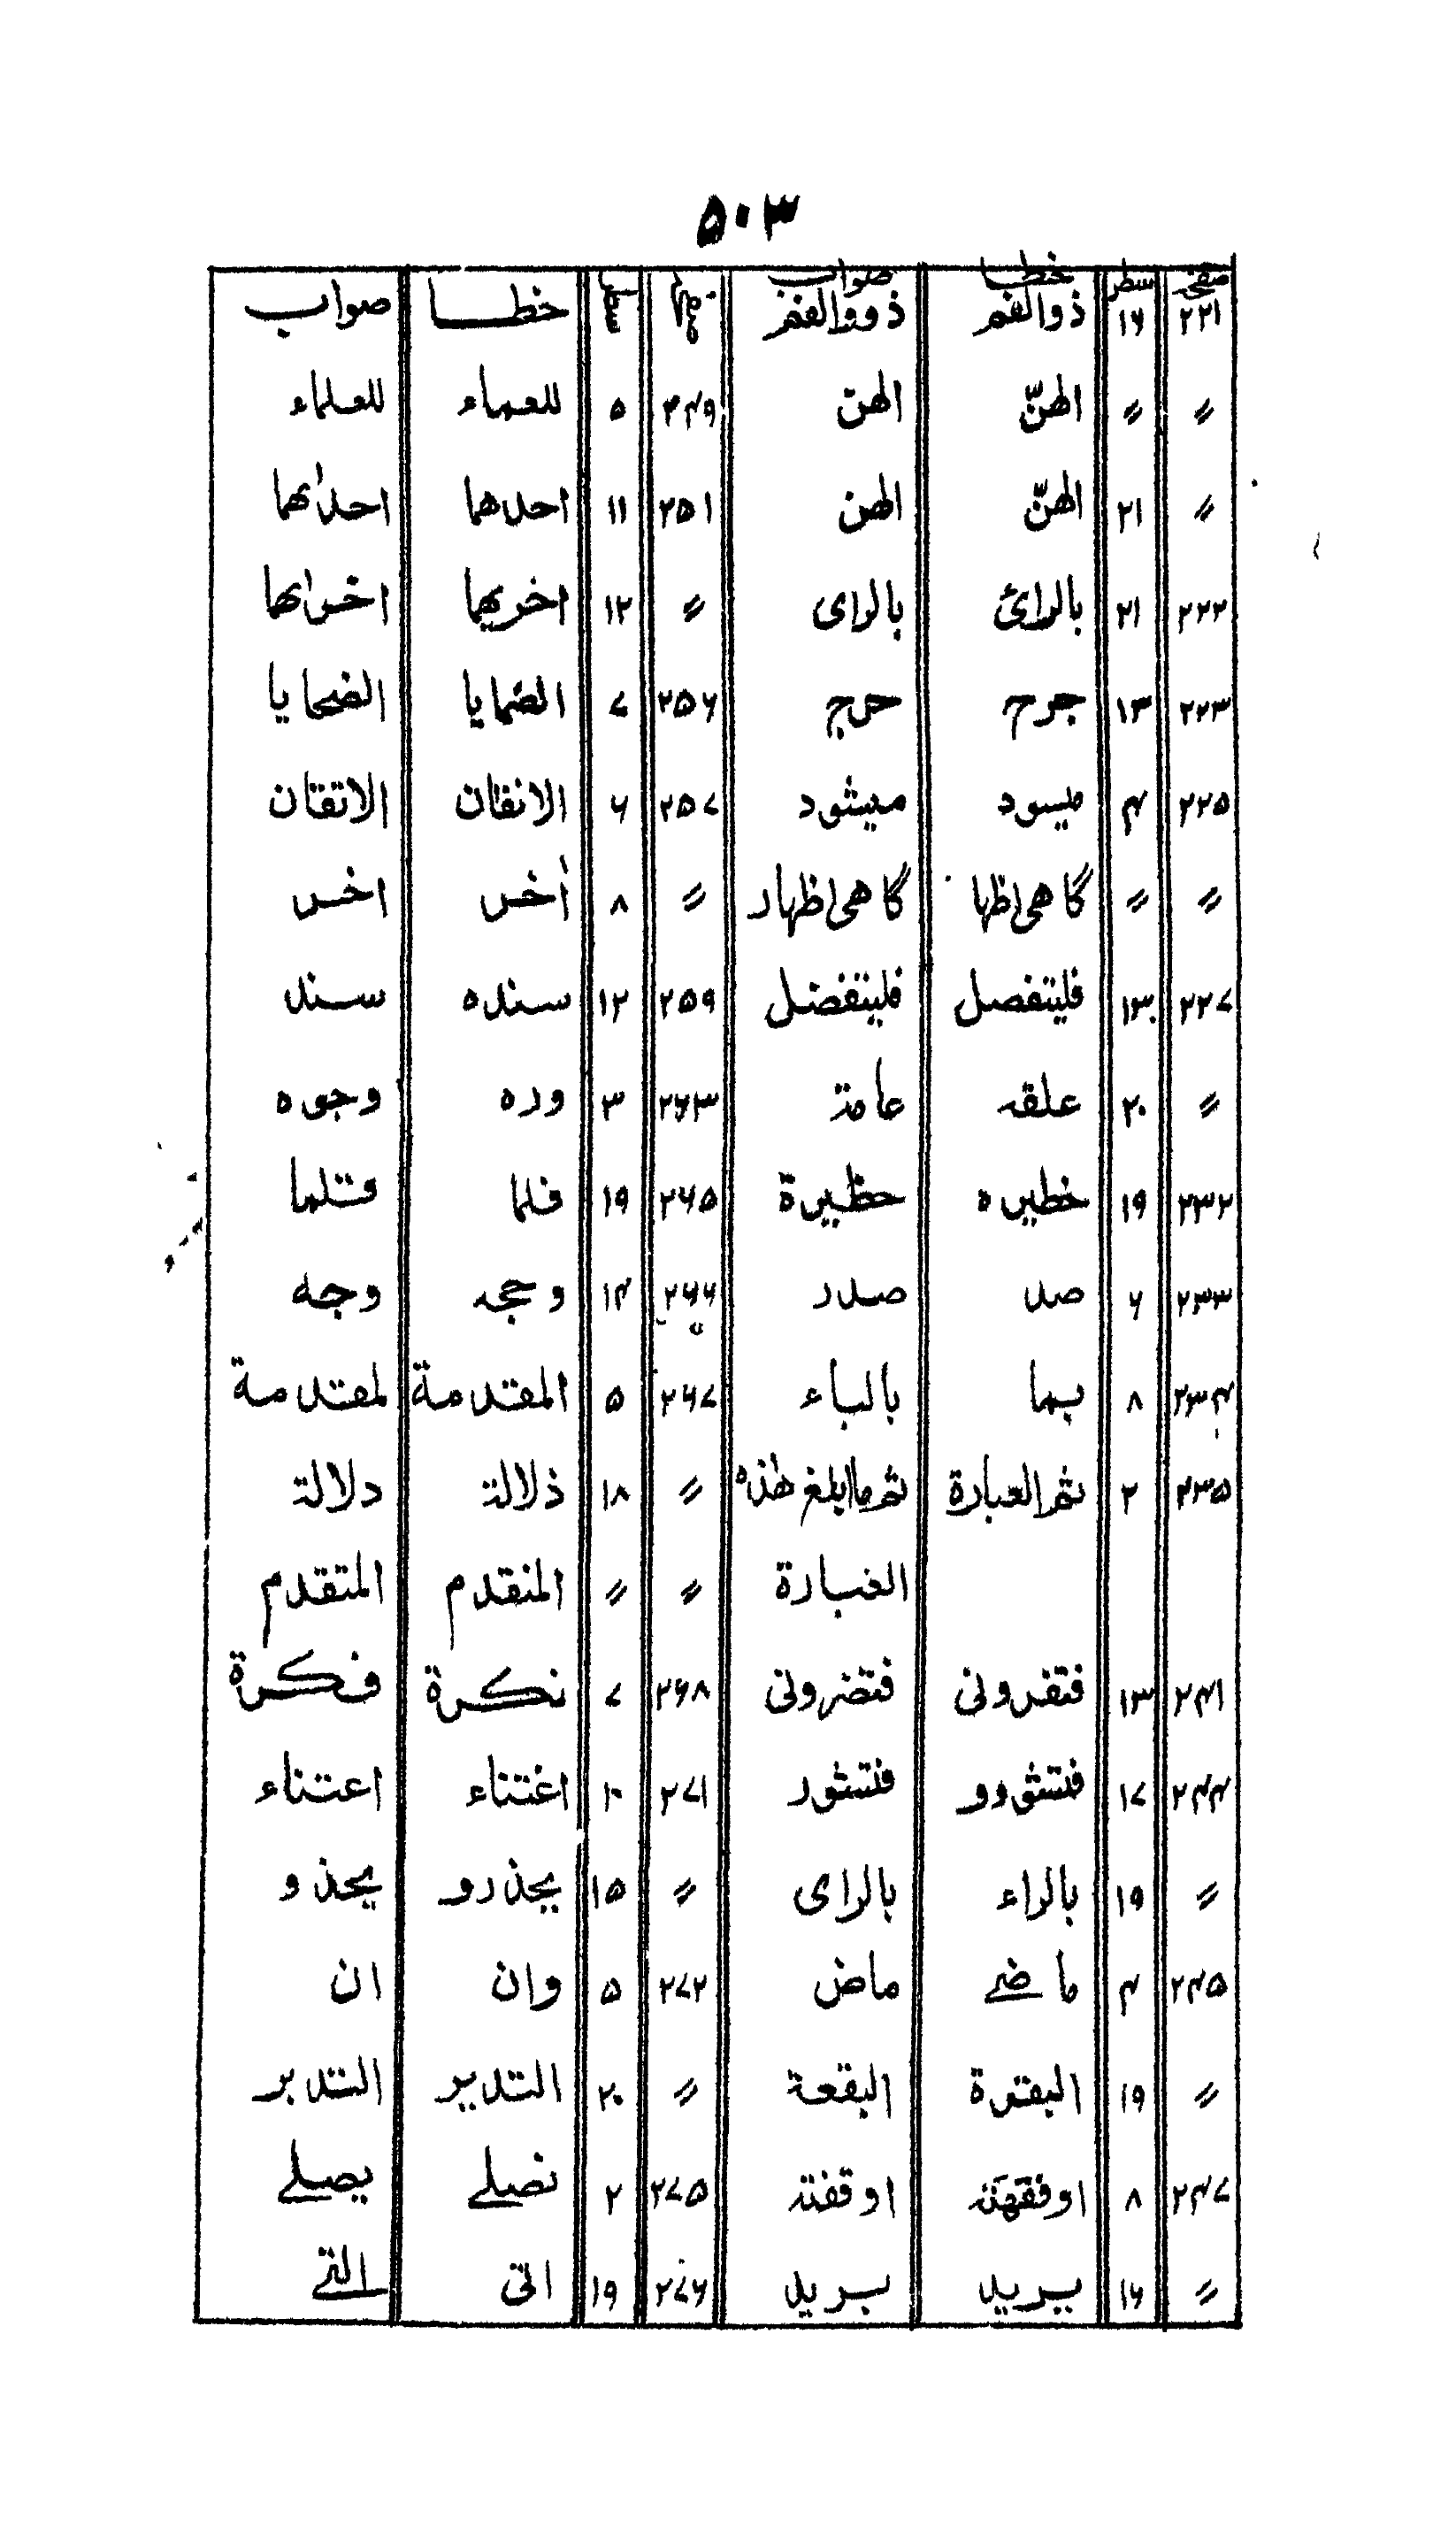 ۵۰۳
صفحہ سطر خطا صواب صفحہ سطر خطا صواب
۲۲۱ ۱۶ ذوالفم ذووالفم
〃 〃 الهنّ الهن ۲۴۹ ۵ للعماء للعلماء
〃 ۲۱ الهنّ الهن ۲۵۱ ۱۱ احدهما احدٰىهما
۲۲۲ ۲۱ بالرائ بالرای 〃 ۱۲ اخريهما اخرٰىهما
۲۲۳ ۱۳ جرح حرج ۲۵۶ ۷ الضمايا الضحايا
۲۲۵ ۴ میسود میشود ۲۵۷ ۶ الانقان الاتقان
〃 〃 گاهی اظها گاهی اظهار 〃 ۸ أخر اخر
۲۲۷ ۱۳ فليتفصل فليتفضل ۲۵۹ ۱۲ سنده سند
〃 ۲۰ علقہ عامة ۲۶۳ ۳ وره وجوه
۲۳۲ ۱۹ خطيره حظيرة ۲۶۵ ۱۹ فلما قتلما
۲۳۳ ۶ صد صدر ۲۶۶ ۱۴ وحجہ وجه
۲۳۴ ۸ بها بالباء ۲۶۷ ۵ المقتدمة لمقتدمة
۲۳۵ ۲ ثم العبارة ثم ما ابلغ هٰذه 〃 ۱۸ ذلالة دلالة
العبارة 〃 〃 المنقدم المتقدم
۲۴۱ ۱۳ فتفرونی فتضرونی ۲۶۸ ۷ نكرة فكرة
۲۴۴ ۱۷ فتشوو فتشور ۲۷۱ ۱۰ اغتناء اعتناء
〃 ۱۹ بالراء بالرای 〃 ۱۵ يحذرو يحذو
۲۴۵ ۴ ماضے ماض ۲۷۲ ۵ وان ان
〃 ۱۹ البقرة البقعة 〃 ۲۰ التدير التدبر
۲۴۷ ۸ اوقفتة ۲۷۵ ۲ نصلے يصلے
〃 ۱۶ يريد بريد ۲۷۶ ۱۹ اتى التے